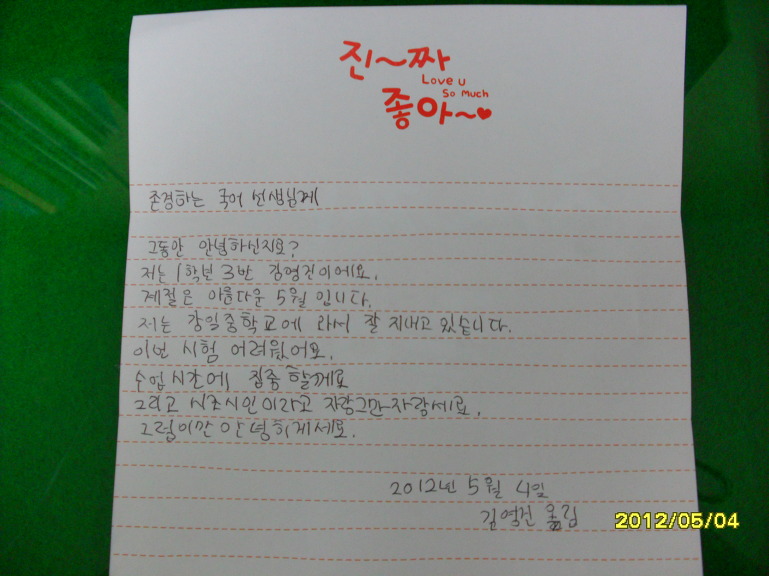 진~짜
Love u
So Much
좋아~♥
존경하는 국어 선생님께
그동안 안녕하신지요?
저는 1학년 3반 김영진이에요.
계절은 아름다운 5월 입니다.
저는 강일중학교에 와서 잘 지내고 있습니다.
이번 시험 어려웠어요.
수업시간에 집중 할께요
그리고 시조시인이라고 자랑그만자랑세요.
그럼이만 안녕히계세요.
2012년 5월 4일
올림
2012/05/04